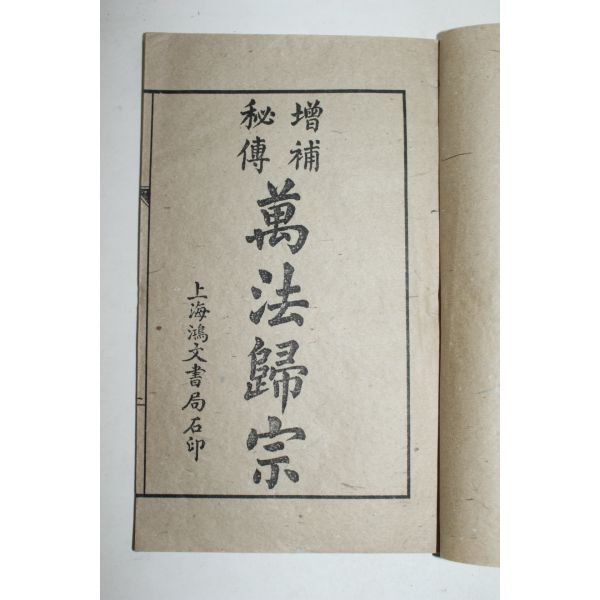 增補
秘傳
萬法歸宗
上海鴻文書局石印
二